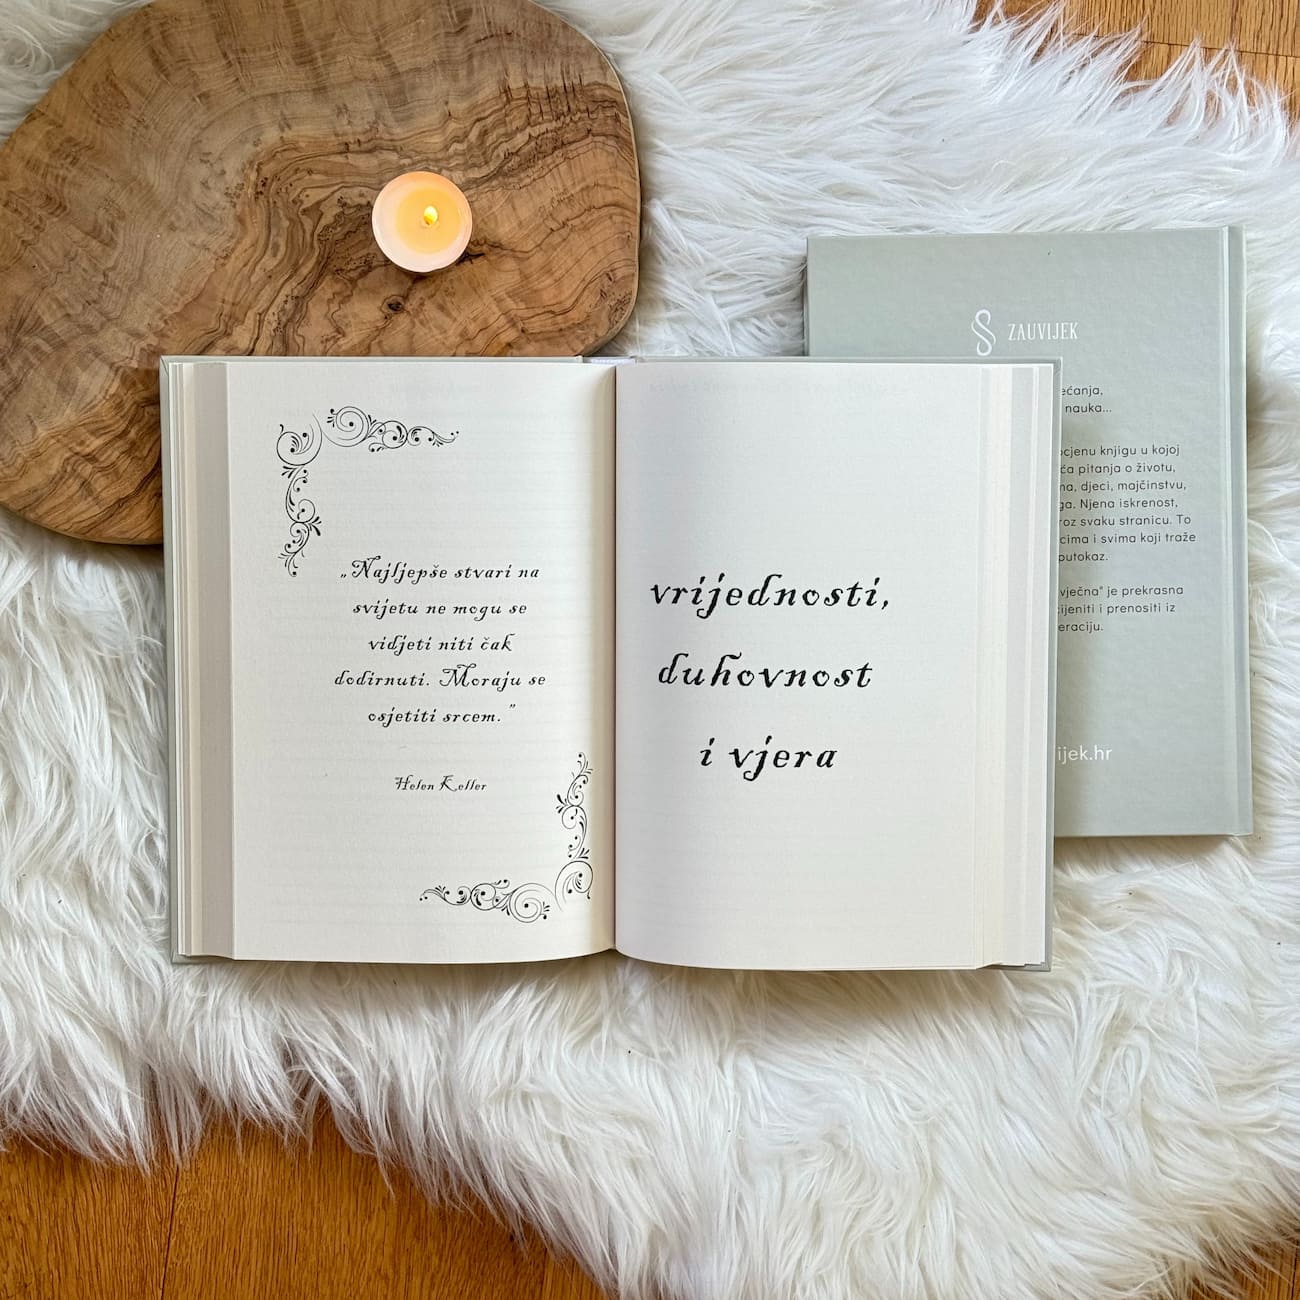 „Najljepše stvari na
svijetu ne mogu se
vidjeti niti čak
dodirnuti. Moraju se
osjetiti srcem.”
Helen Keller
vrijednosti,
duhovnost
i vjera
ZAUVIJEK
nauka...
knjigu u kojoj
pitanja o životu,
djeci, majčinstvu,
Njena iskrenost,
svaku stranicu. To
i svima koji traže
je prekrasna
i prenositi iz